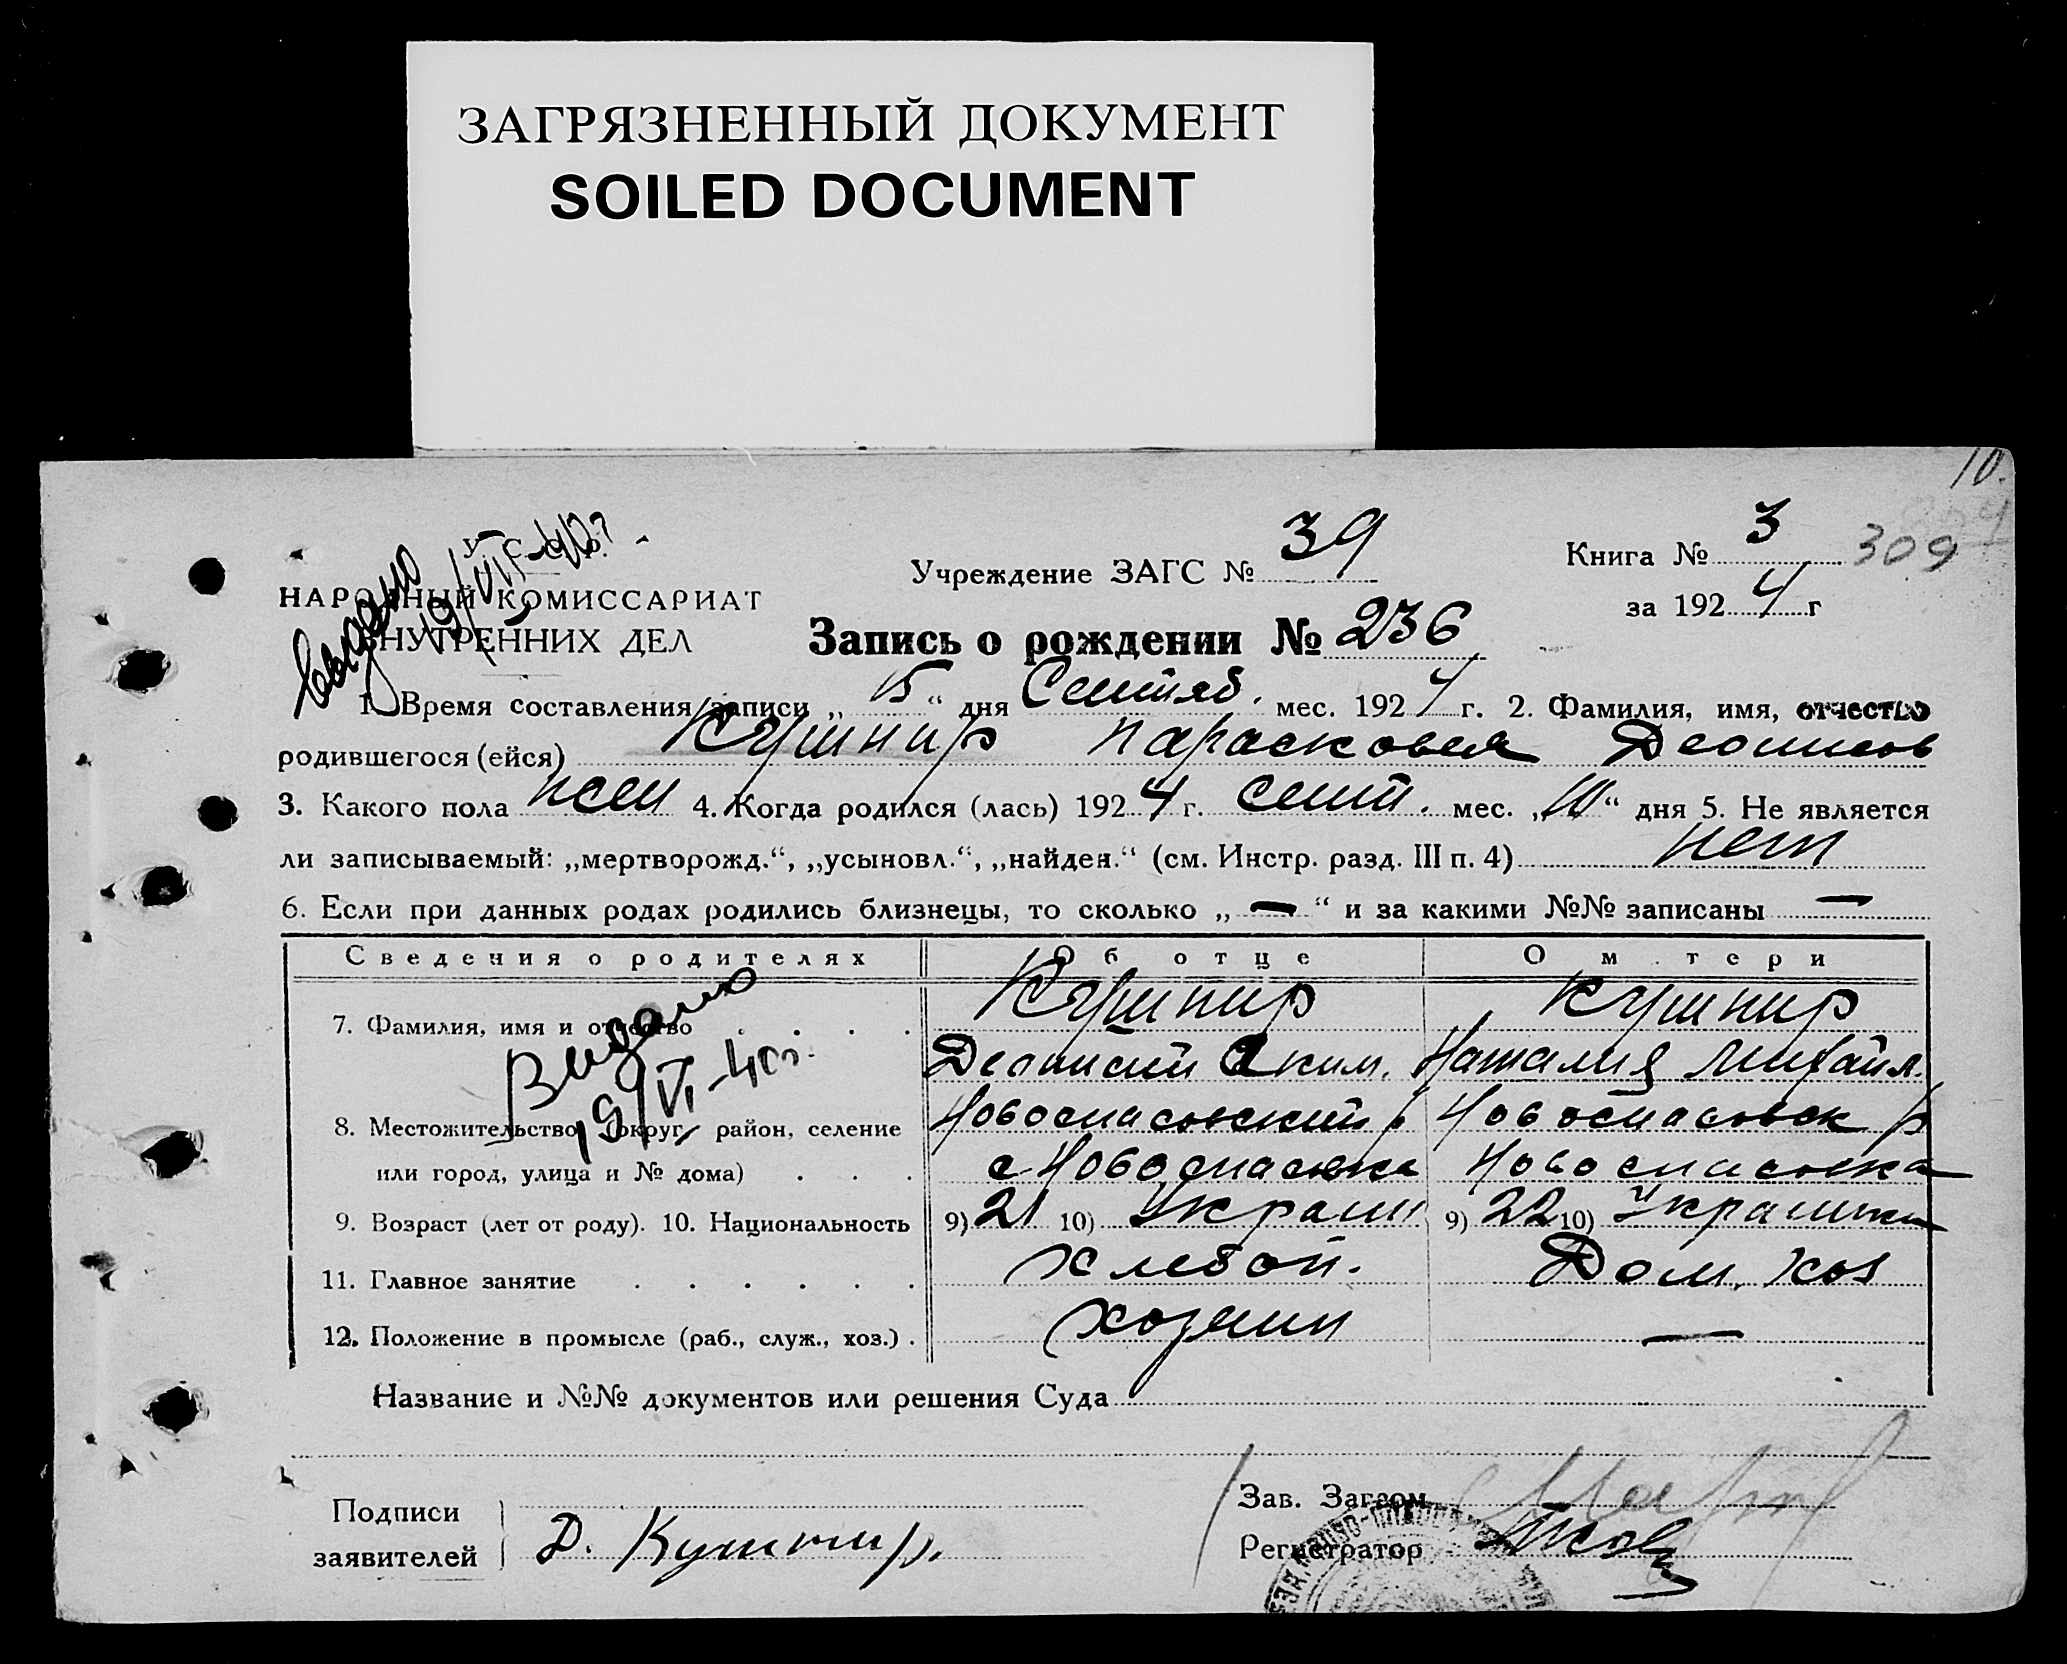 ЗАГРЯЗНЕННЫЙ ДОКУМЕНТ
SOILED DOCUMENT
10.
У. С. С. Р.
НАРОДНЫЙ КОМИССАРИАТ
ВНУТРЕННИХ ДЕЛ
Учреждение ЗАГС № 39
Книга № 3 309
за 1924 г
Запись о рождении № 236
1. Время составления записи „15“ дня Сентяб. мес. 1924 г. 2. Фамилия, имя, отчество
родившегося (ейся) Кушнир Парасковея Деонисов
3. Какого пола жен 4. Когда родился (лась) 1924 г. сент. мес. „10“ дня 5. Не является
ли записываемый: „мертворожд.“, „усыновл.“, „найден.“ (см. Инстр. разд. III п. 4) нет
6. Если при данных родах родились близнецы, то сколько „—“ и за какими №№ записаны —
Сведения о родителях Об отце О м тери
7. Фамилия, имя и отчество . . . . Кушнир Кушнир
Деонисий Аким. Наталия Михайл.
Видано
19/VI-40г.
8. Местожительство (округ, район, селение Новоспасовский р Новоспасовск р
или город, улица и № дома) . . . с Новоспасовка Новоспасовка
9. Возраст (лет от роду). 10. Национальность 9) 21 10) Украин 9) 22 10) Украинка
11. Главное занятие . . . . . . Хлебоп. Дом. хоз
12. Положение в промысле (раб., служ., хоз.) . хозяин —
Название и №№ документов или решения Суда
Подписи
заявителей Д. Кушнир.
Зав. Загсом
Регистратор